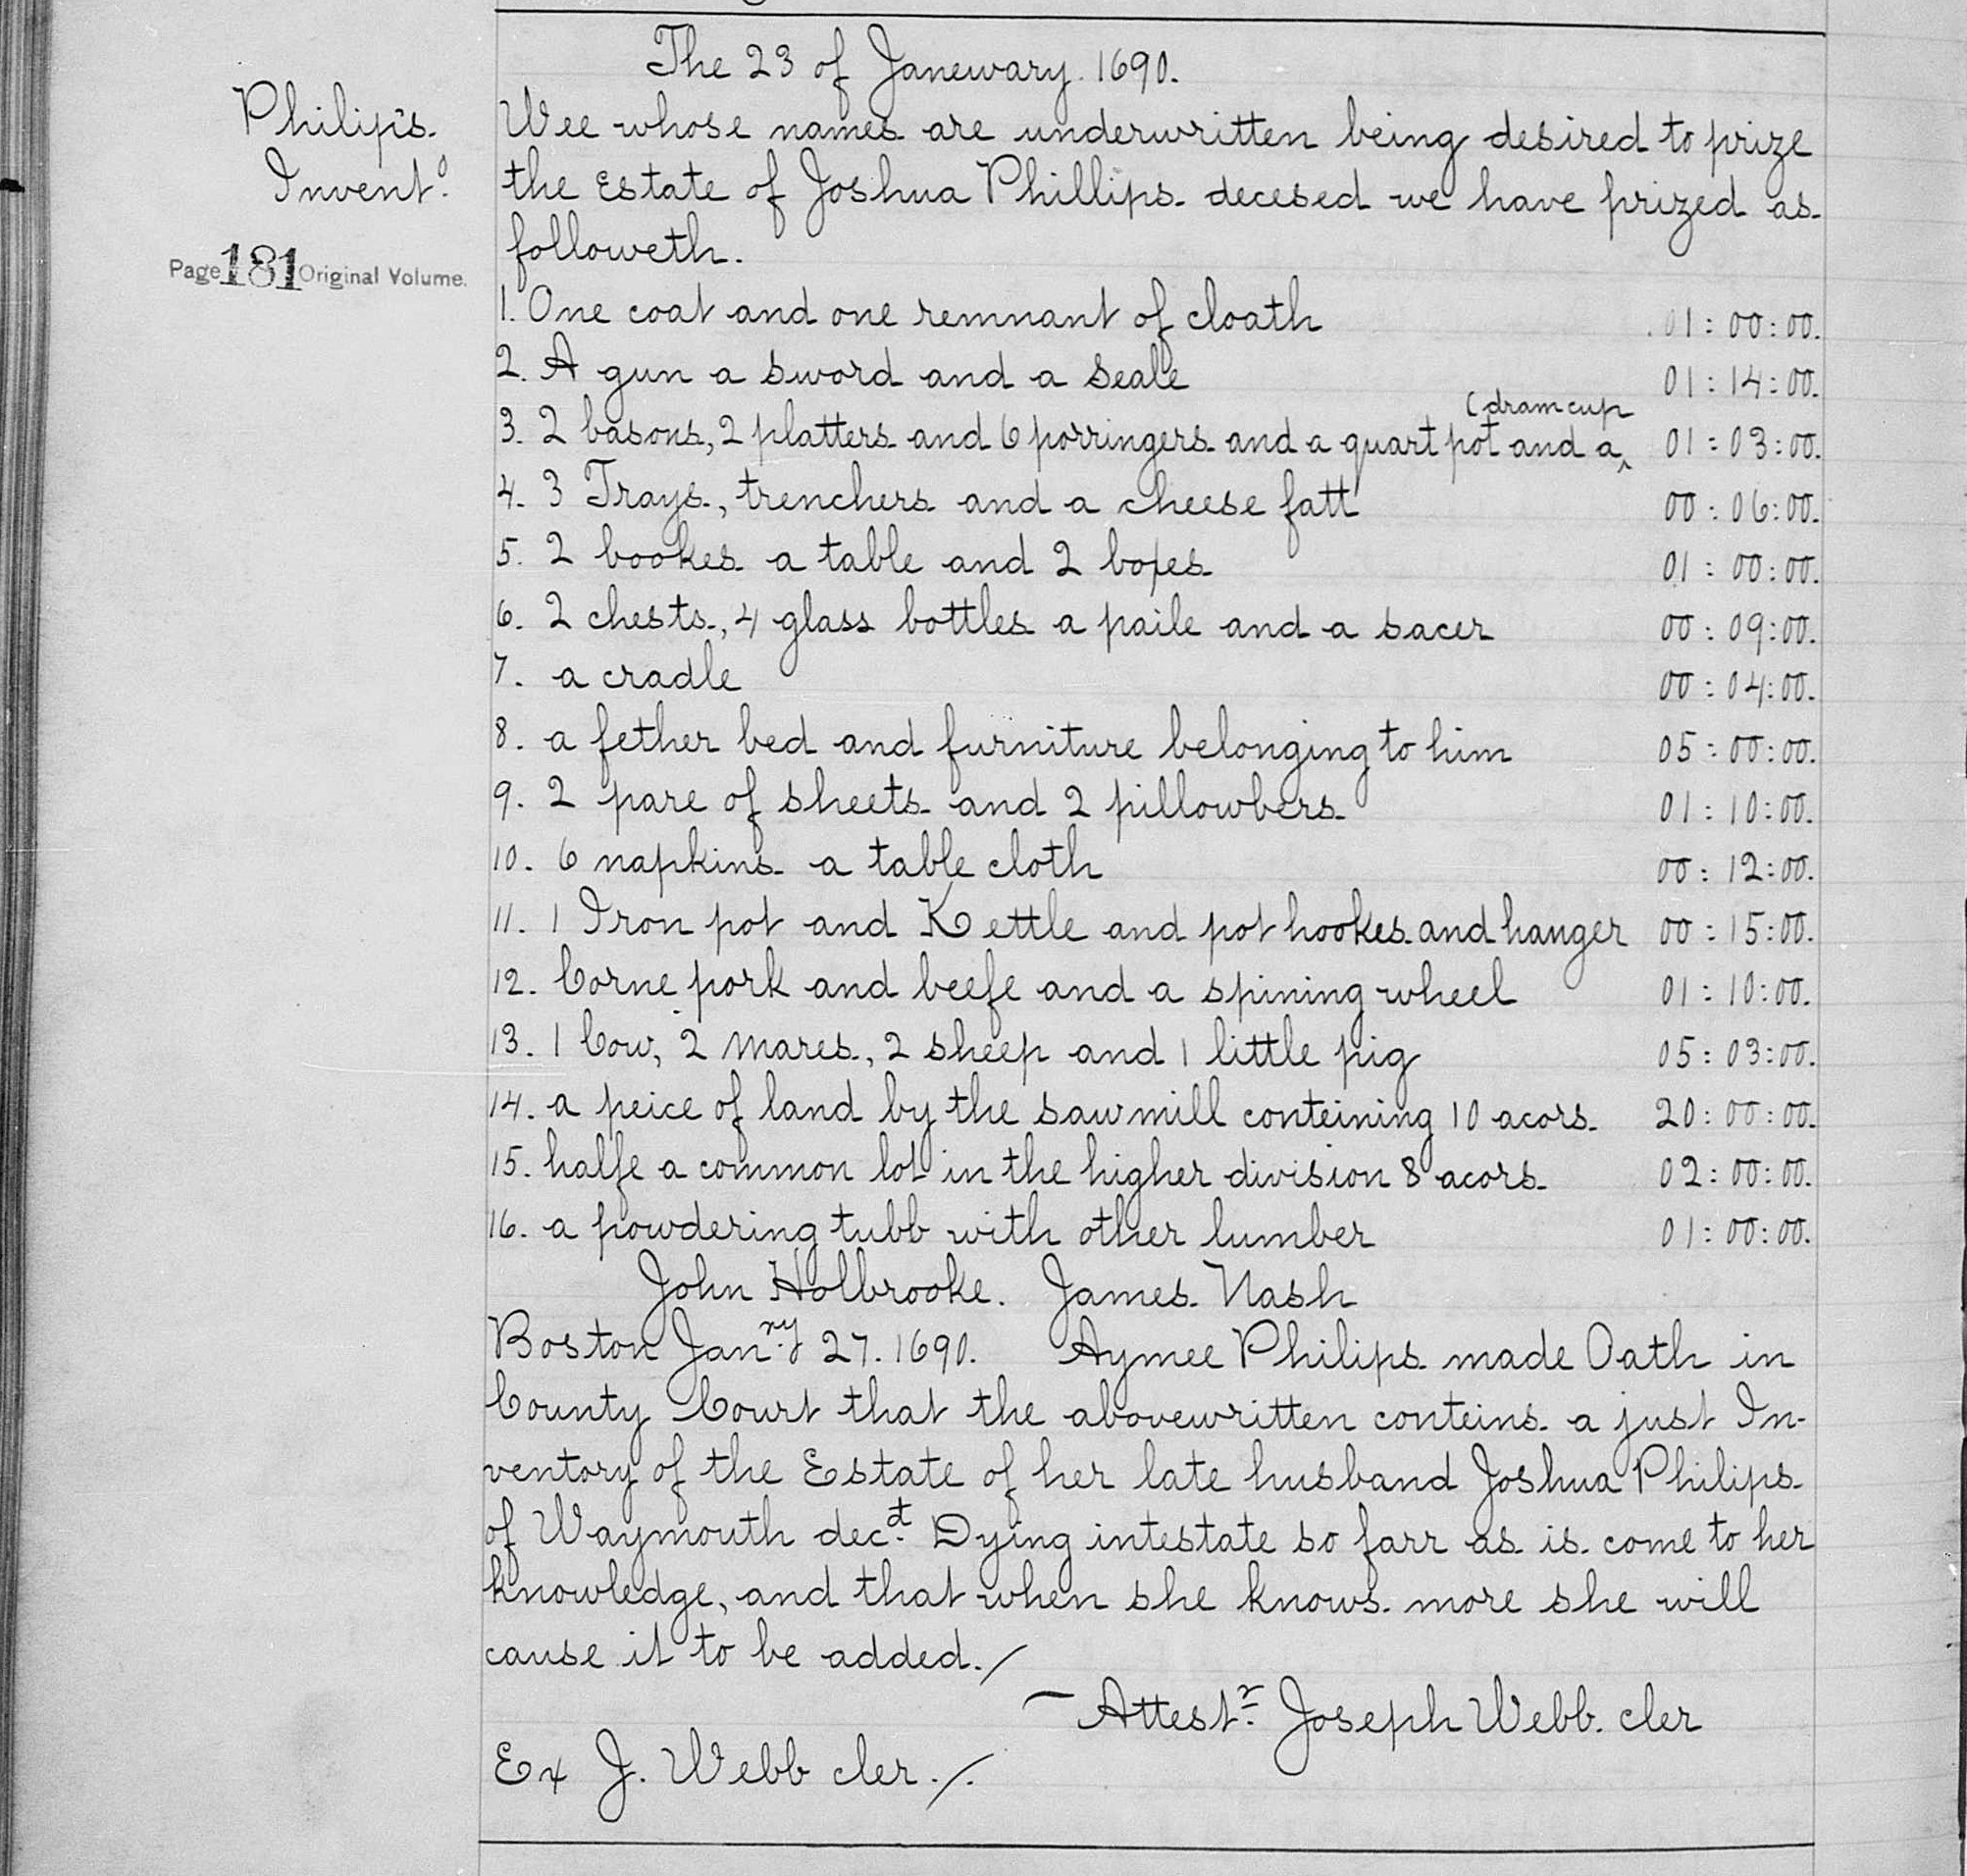 The 23 of Janewary. 1690.
Philips.
Invent⁰.
Wee whose names are underwritten being desired to prize
the Estate of Joshua Phillips decesed we have prized as
followeth.
Page 181 Original Volume.
1. One coat and one remnant of cloath 01:00:00.
2. A gun a sword and a seale 01:14:00.
(dramcup
3. 2 basons, 2 platters and 6 porringers and a quart pot and a‸ 01:03:00.
4. 3 Trays, trenchers and a cheese fatt 00:06:00.
5. 2 bookes a table and 2 boxes 01:00:00.
6. 2 chests, 4 glass bottles a paile and a sacer 00:09:00.
7. a cradle 00:04:00.
8. a fether bed and furniture belonging to him 05:00:00.
9. 2 pare of sheets and 2 pillowbers 01:10:00.
10. 6 napkins a table cloth 00:12:00.
11. 1 Iron pot and Kettle and pot hookes and hanger 00:15:00.
12. Corne pork and beefe and a spining wheel 01:10:00.
13. 1 Cow, 2 mares, 2 sheep and 1 little pig 05:03:00.
14. a peice of land by the sawmill conteining 10 acors 20:00:00.
15. halfe a common lot in the higher division 8 acors 02:00:00.
16. a powdering tubb with other lumber 01:00:00.
John Holbrooke. James Nash
Boston Janry 27. 1690. Aymee Philips made Oath in
County Court that the abovewritten conteins a just In-
ventory of the Estate of her late husband Joshua Philips
of Waymouth decd. Dying intestate so farr as is come to her
knowledge, and that when she knows more she will
cause it to be added./
Attestr. Joseph Webb. cler
Ex J. Webb cler./.